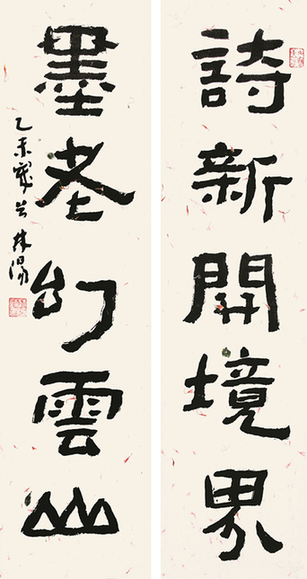 詩新開境界
墨老幻雲山
乙未歲 林